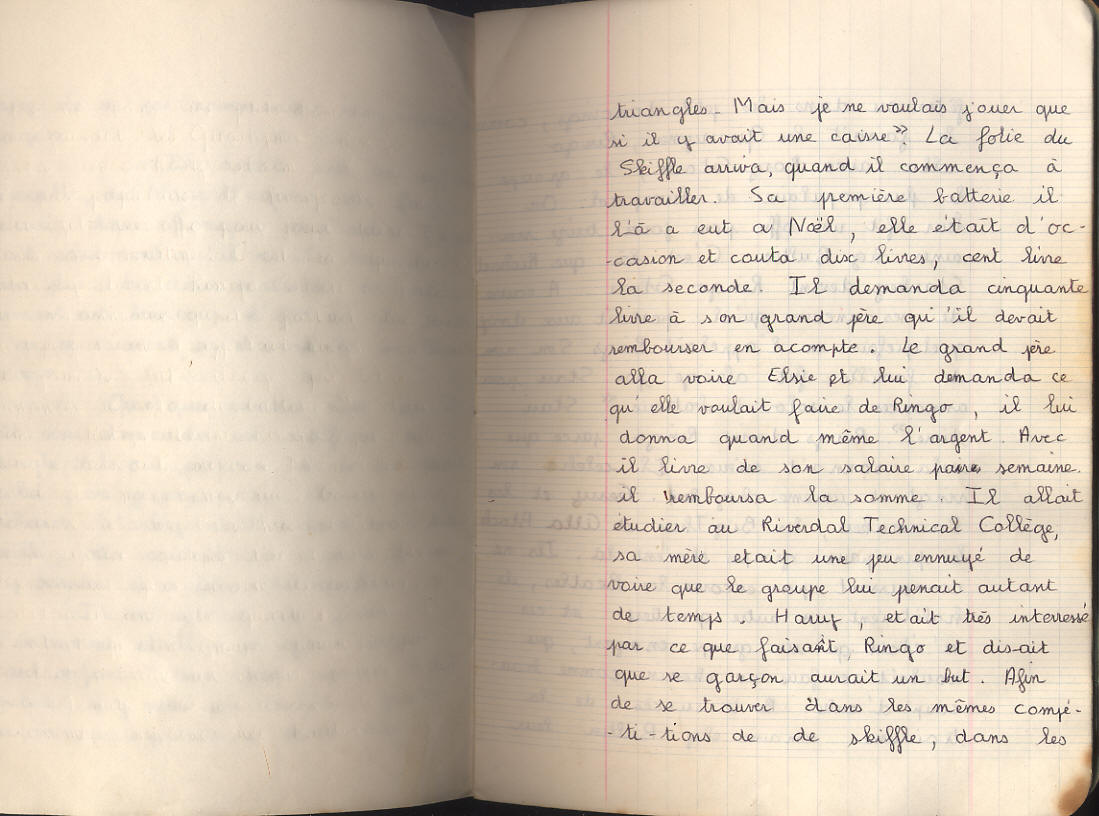 triangles. Mais je ne voulais jouer que
si il y avait une caisse". La folie du
Skiffle arriva, quand il commença à
travailler. Sa première batterie il
l'à a eut a Noël, elle était d'oc-
-casion et couta dix livres, cent livre
la seconde. Il demanda cinquante
livre à son grand père qu'il devait
rembourser en acompte. Le grand père
alla voire Elsie et lui demanda ce
qu'elle voulait faire de Ringo, il lui
donna quand même l'argent. Avec
il livre de son salaire par semaine.
il remboursa la somme. Il allait
étudier au Riverdal Technical Collège,
sa mère etait une peu ennuyé de
voire que le groupe lui penait autant
de temps. Harry, etait très interressé
par ce que faisait, Ringo et dis-ait
que se garçon aurait un but. Afin
de se trouver dans les mêmes compé-
-ti-tions de de skiffle, dans les